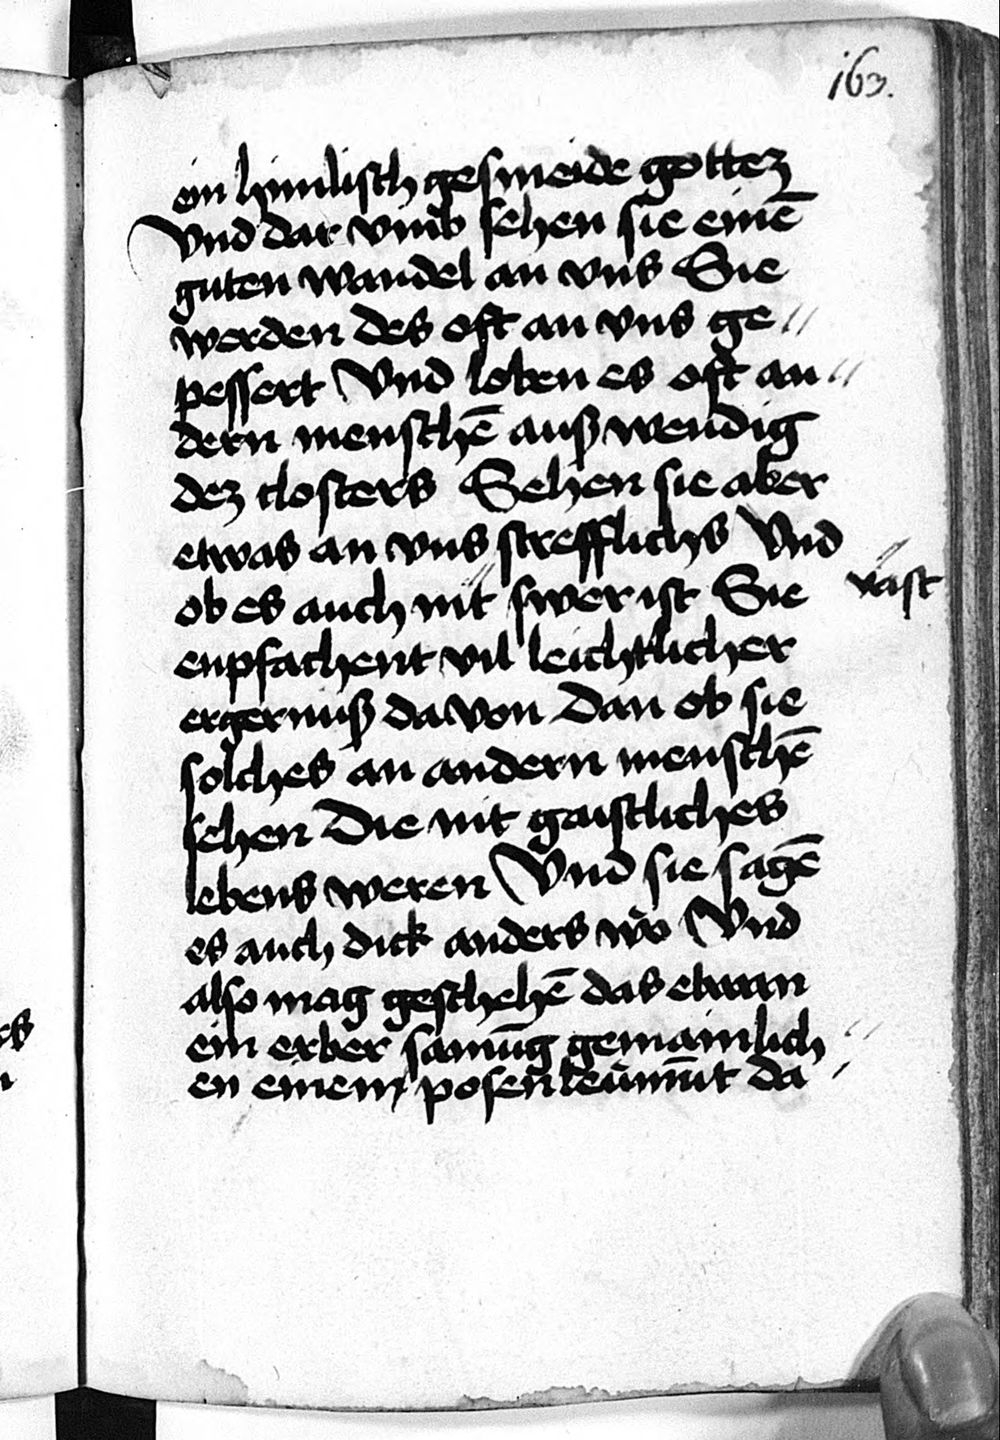 163.
ein himlisch gesmeide gottez
Vnd dar vmb sehen sie einē
guten wandel an vns Sie
werden des oft an vns ge〃
pessert Vnd loben es oft an〃
dern menschē auß wendig
dez closters Sehen sie aber
etwas an vns strefflichs Vnd
ob es auch nit〃 swer ist Sie 〃vast
enpfachent vil leichtlicher
ergernuß da von Dan ob sie
solches an andern menschē
sehen Die nit gaistliches
lebens weren Vnd sie sagē
es auch dick anders wo Vnd
also mag geschehē das etwan
ein erber samūg gemainlich〃
en einem posen leūmūt da